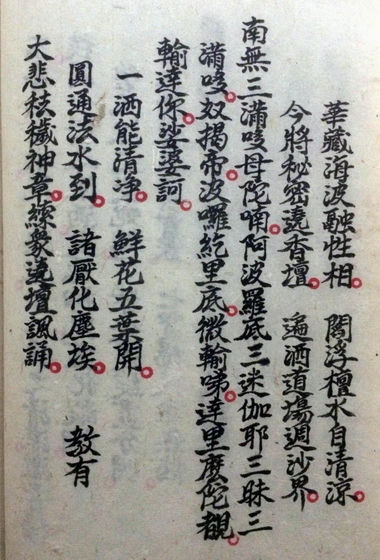 華藏海波融性相。閻浮檀水自清涼。
今將秘密遶香壇。遍洒道場週沙界。
南無三滿哆母陀喃。阿波羅底三迷伽耶三昧三
滿哆。奴揭帝。波囉紇里底。微輸啼。達里麼陀覩
輸達你。娑婆訶。
一洒能清淨。鮮花五葉開。
圓通法水到。諸厭化塵埃。教有
大悲枝穢神章。綠衆遶壇諷誦。